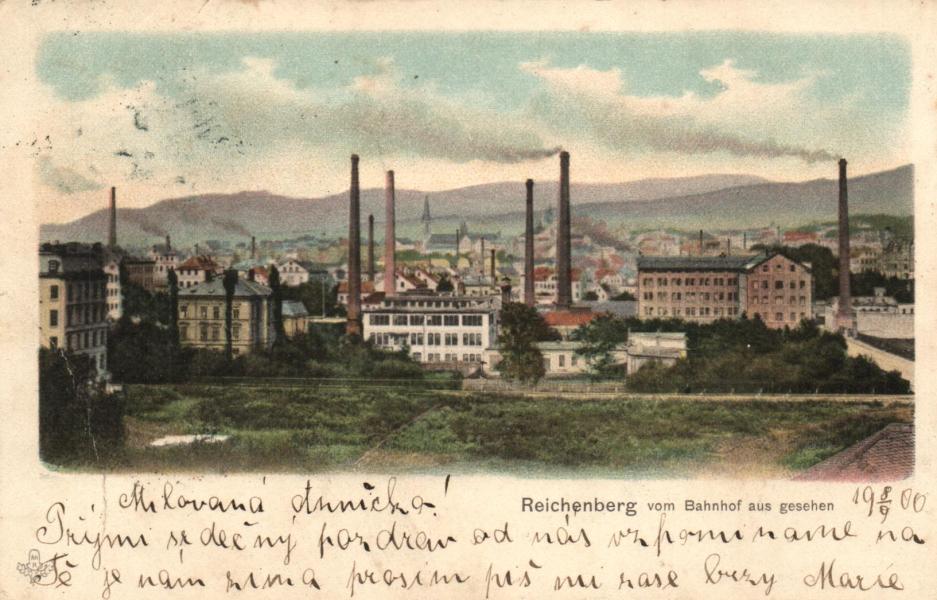 Reichenberg vom Bahnhof aus gesehen
19 8/9 00
Milovaná Aničko!
Přijmi srdečný pozdrav od nás vzpomíname na
Tě je nám zima prosim piš mi zase brzy Marie